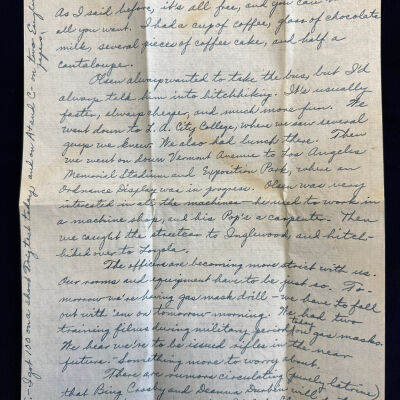 As I said before, it's all free, and you can
all you want. I had a cup of coffee, glass of chocolate
milk, several pieces of coffee cake, and half a
cantaloupe.
Olsen always wanted to take the bus, but I'd
always talk him into hitchhiking. It's usually
faster, always cheaper, and much more fun. We
went down to L.A. City College, where we saw several
guys we knew. We also had lunch there. Then
we went on down Vermont Avenue to Los Angeles
Memorial Stadium and Exposition Park, where an
Ordnance Display was in progress. Olsen was very
interested in all the machines - he used to work in
a machine shop, and his Pop's a carpenter. Then
we caught the streetcar to Inglewood and hitch-
hiked over to Loyola.
The officers are becoming more strict with us.
Our rooms and equipment have to be just so. To-
morrow we're having gas mask drill - we have to fall
out with 'em on tomorrow morning. We had two
training films during military period on gas masks.
We hear we're to be issued rifles in the near
future. Something more to worry about.
There are rumors circulating (purely latrine)
that Bing Crosby and Deanna Durbin will
I got 100 on a short Trig test today and an A and C- on two English
papers.